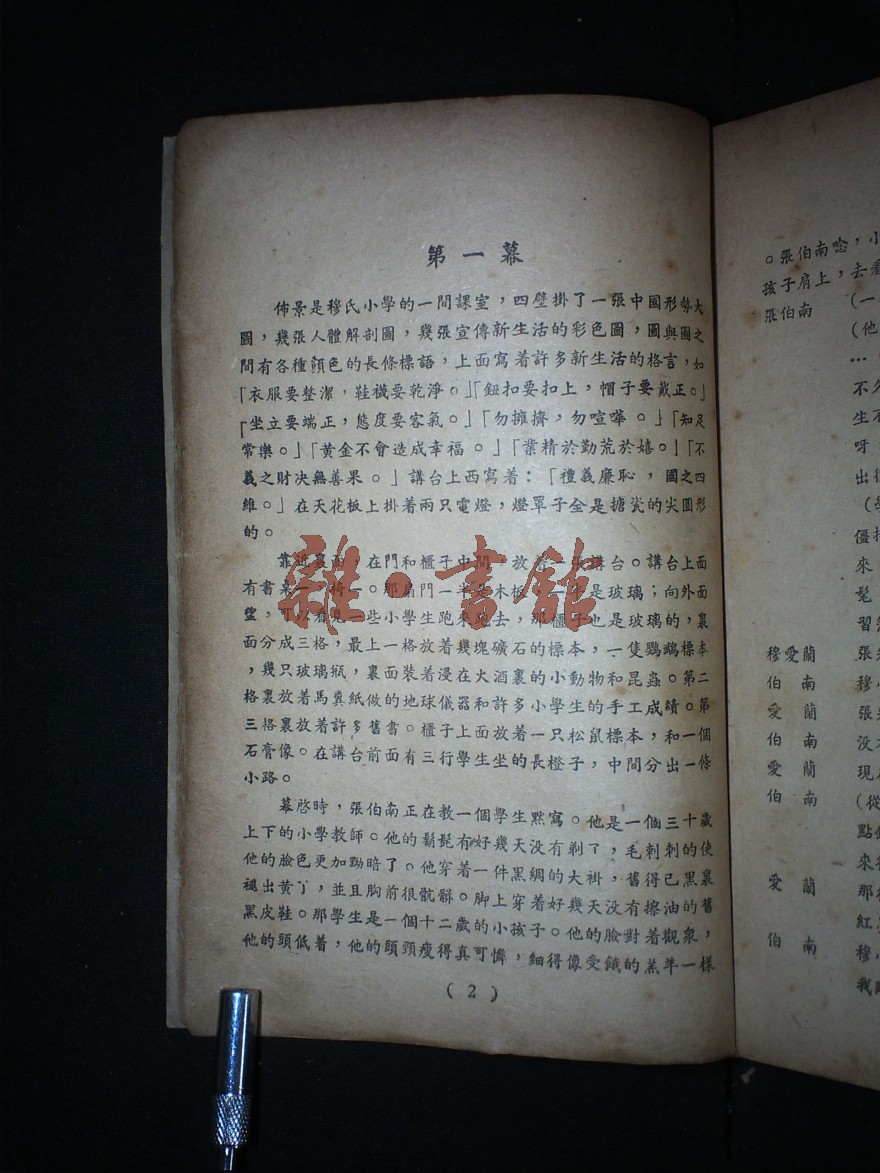 第一幕
佈景是穆氏小學的一間課室，四壁掛了一張中國形勢大
圖，幾張人體解剖圖，幾張宣傳新生活的彩色圖，圖與圖之
間有各種顏色的長條標語，上面寫着許多新生活的格言，如
「衣服要整潔，鞋襪要乾淨。」「鈕扣要扣上，帽子要戴正。」
「坐立要端正，態度要客氣。」「勿擁擠，勿喧嘩。」「知足
常樂。」「黃金不會造成幸福。」「業精於勤荒於嬉。」「不
義之財决無善果。」講台上西寫着：「禮義廉恥，國之四
維。」在天花板上掛着兩只電燈，燈罩子全是搪瓷的尖圓形
的。
靠近裏面，在門和櫃子中間，放着一張講台。講台上面
有書桌一，椅一。那扇門一半是木板，一半是玻璃；向外面
望，可以看見一些小學生跑來跑去，那櫃子也是玻璃的，裏
面分成三格，最上一格放着幾塊礦石的標本，一隻鸚鵡標本
，幾只玻璃瓶，裏面裝着浸在火酒裏的小動物和昆蟲。第二
格裏放着馬糞紙做的地球儀器和許多小學生的手工成績。第
三格裏放着許多舊書。櫃子上面放着一只松鼠標本，和一個
石膏像。在講台前面有三行學生坐的長櫈子，中間分出一條
小路。
幕啓時，張伯南正在教一個學生默寫。他是一個三十歲
上下的小學教師。他的鬍髭有好幾天没有剃了，毛刺刺的使
他的臉色更加黝暗了。他穿着一件黑綢的大褂，舊得已黑裏
褪出黃了，並且胸前很骯髒。脚上穿着好幾天没有擦油的舊
黑皮鞋。那學生是一個十二歲的小孩子。他的臉對着觀衆，
他的頭低着，他的頭頸瘦得真可憐，細得像受餓的羔羊一樣
(2)
。張伯南唸，小
孩子肩上，去看
張伯南 （一
（他
…
不久
生
呀
出
（學
僵
來
髦
習
穆愛蘭 張
伯南 穆小
愛蘭 張
伯南 没
愛蘭 現
伯南 （從
點
來
愛蘭 那
紅
伯南 穆小
我
雜·書館